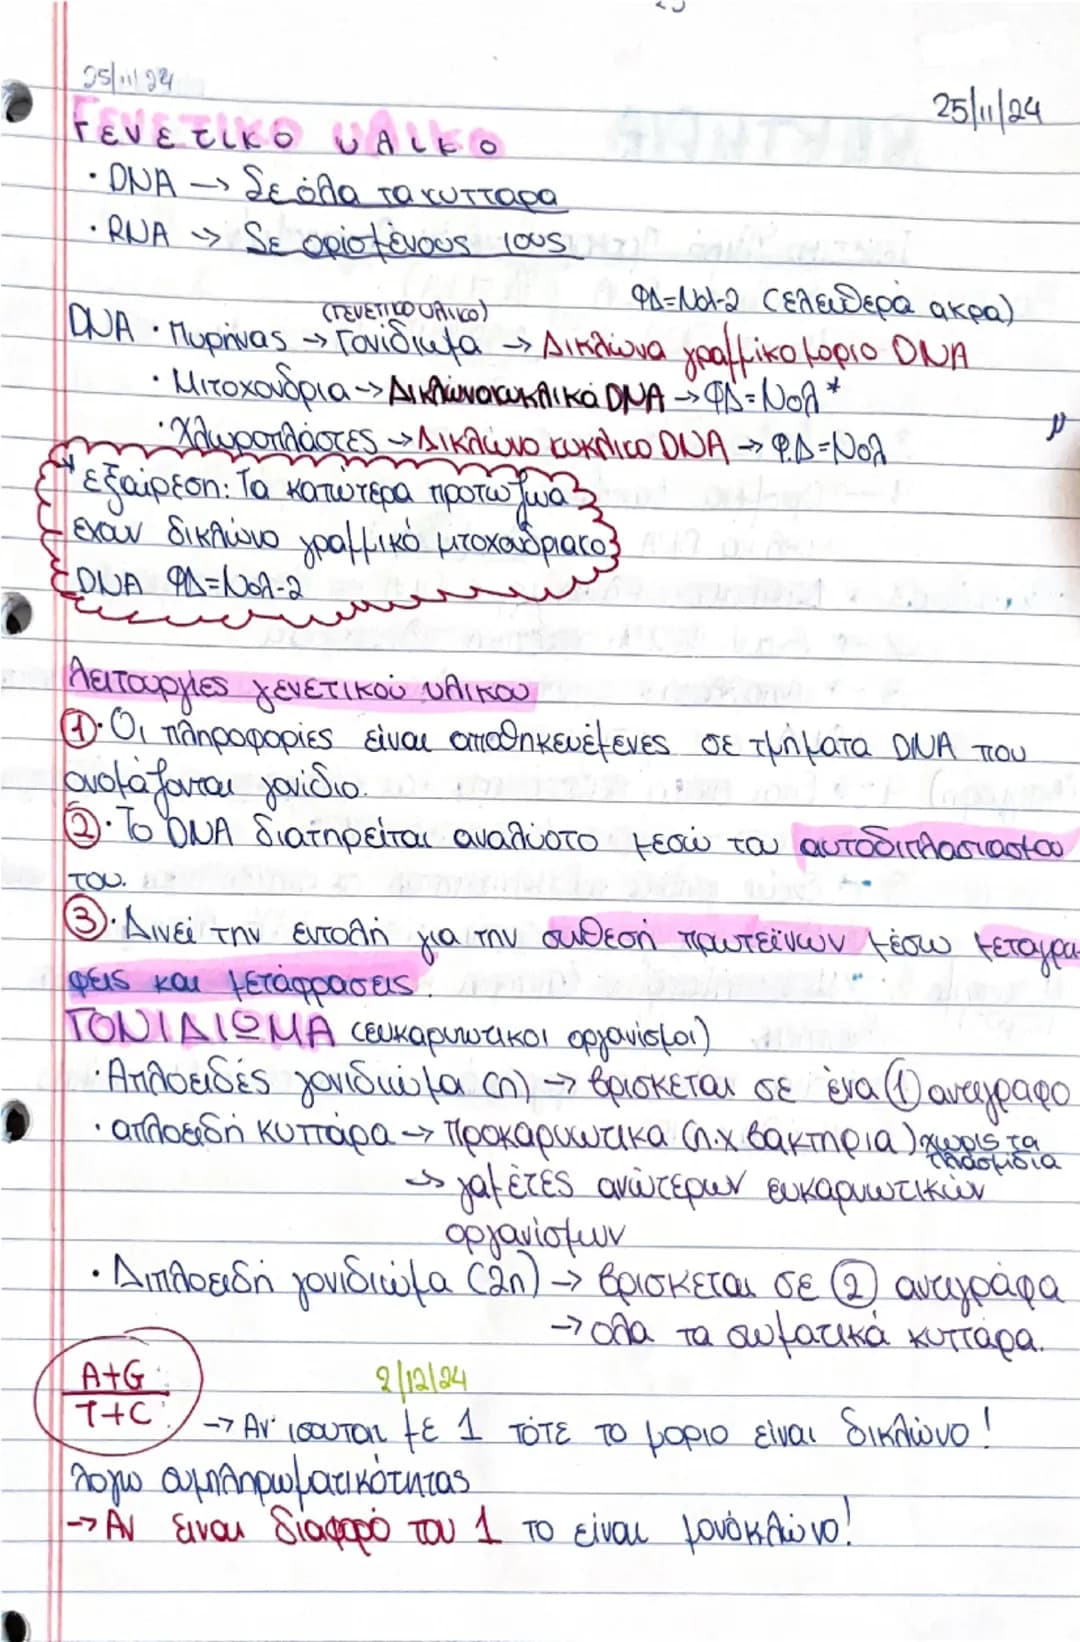 25/11/24
25/11/24
ΓΕΝΕΤΙΚΟ ΥΛΙΚΟ
· DNA → Σε όλα τα κυτταρα
· RNA → Σε ορισμενους ιους
ΦΔ=Νολ-2 (ελευθερα ακρα)
(ΓΕΝΕΤΙΚΟ ΥΛΙΚΟ)
DNA · Πυρηνας → Γονιδιωμα → Δικλωνα γραμμικο μοριο DNA
· Μιτοχονδρια → Δικλωνο κυκλικά DNA → ΦΔ=Νολ*
· Χλωροπλάστες → Δικλωνο κυκλικο DNA → Φ.Δ=Νολ
* εξαίρεση: Τα κατώτερα πρωτωζωα
εχουν δικλώνο γραμμικό μιτοχονδριακο
DNA ΦΔ=Νολ-2
Λειτουργίες γενετικού υλικου
1· Οι πληροφορίες είναι αποθηκευέμενες σε τμήματα DNA που
ονομάζονται γονίδιο.
2· Το DNA διατηρείται αναλύοτο μεσώ του αυτοδιπλασιασμου
του.
3· Δινεί την εντολή για την συθεσή πρωτεϊνων μέσω μεταγρα-
φεις και μετάφρασεις.
ΓΟΝΙΔΙΩΜΑ (ευκαρυωτικοι οργανισμοι)
· Απλοειδές γονιδιώμα (n) → βρισκεται σε ένα 1 αντιγραφο
· απλοειδή κυττάρα → Προκαρυωτικα (π.χ βακτηρια) χωρις τα
πλασμιδια
→ γαμέτες ανώτερων ευκαρυωτικών
οργανίσμων
· Διπλοειδή γονιδιώμα (2n) → βρισκεται σε 2 αντιγράφα
→ ολα τα σωματικά κυττάρα.
A+G
T+C
2/12/24
→ Αν ισουται με 1 τότε το μοριο είναι δικλώνο!
λογω συμπληρωματικότητας
→ Αν ειναι διαφορό του 1 το είναι μονόκλωνο!